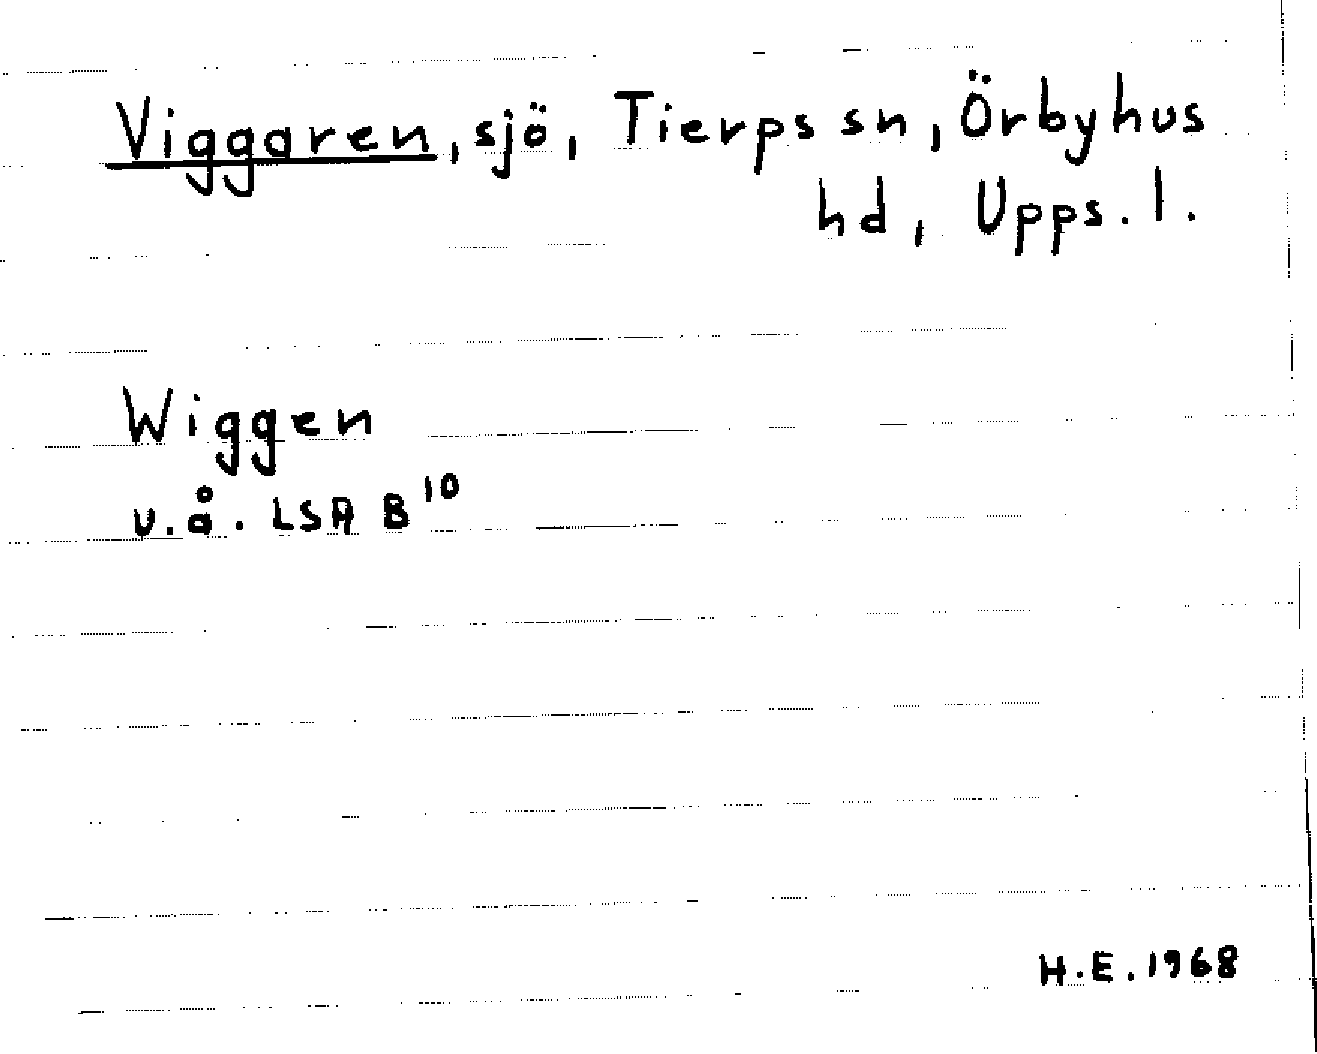 Viggaren, sjö, Tierps sn, Örbyhus
hd, Upps. l.
Wiggen
u.å. LSA B¹⁰
H.E. 1968